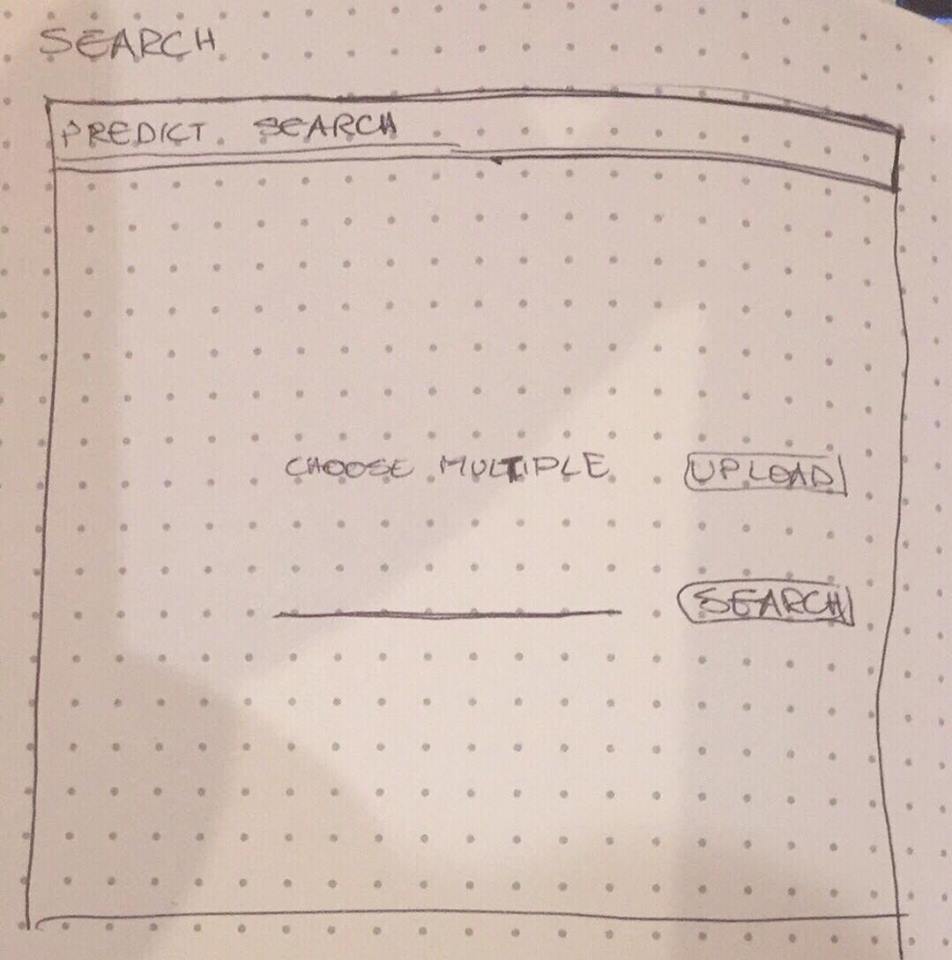 SEARCH
PREDICT SEARCH
CHOOSE MULTIPLE UPLOAD
SEARCH